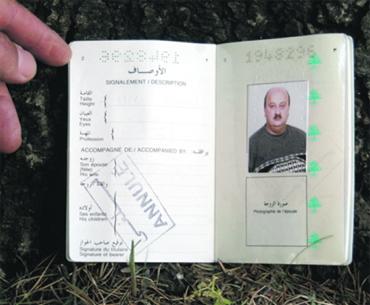 1948296
الأوصاف
SIGNALEMENT / DESCRIPTION
القامة
Taille
Height
العينان
Yeux
Eyes
المهنة
Profession
ACCOMPAGNÉ DE / ACCOMPANIED BY:
زوجته
Son épouse
(Née)
His wife
أولاده
Ses enfants
His children
توقيع صاحب الجواز
Signature du titulaire
Signature of bearer
ANNULÉ
1948296
صورة الزوجة
Photographie de l'épouse